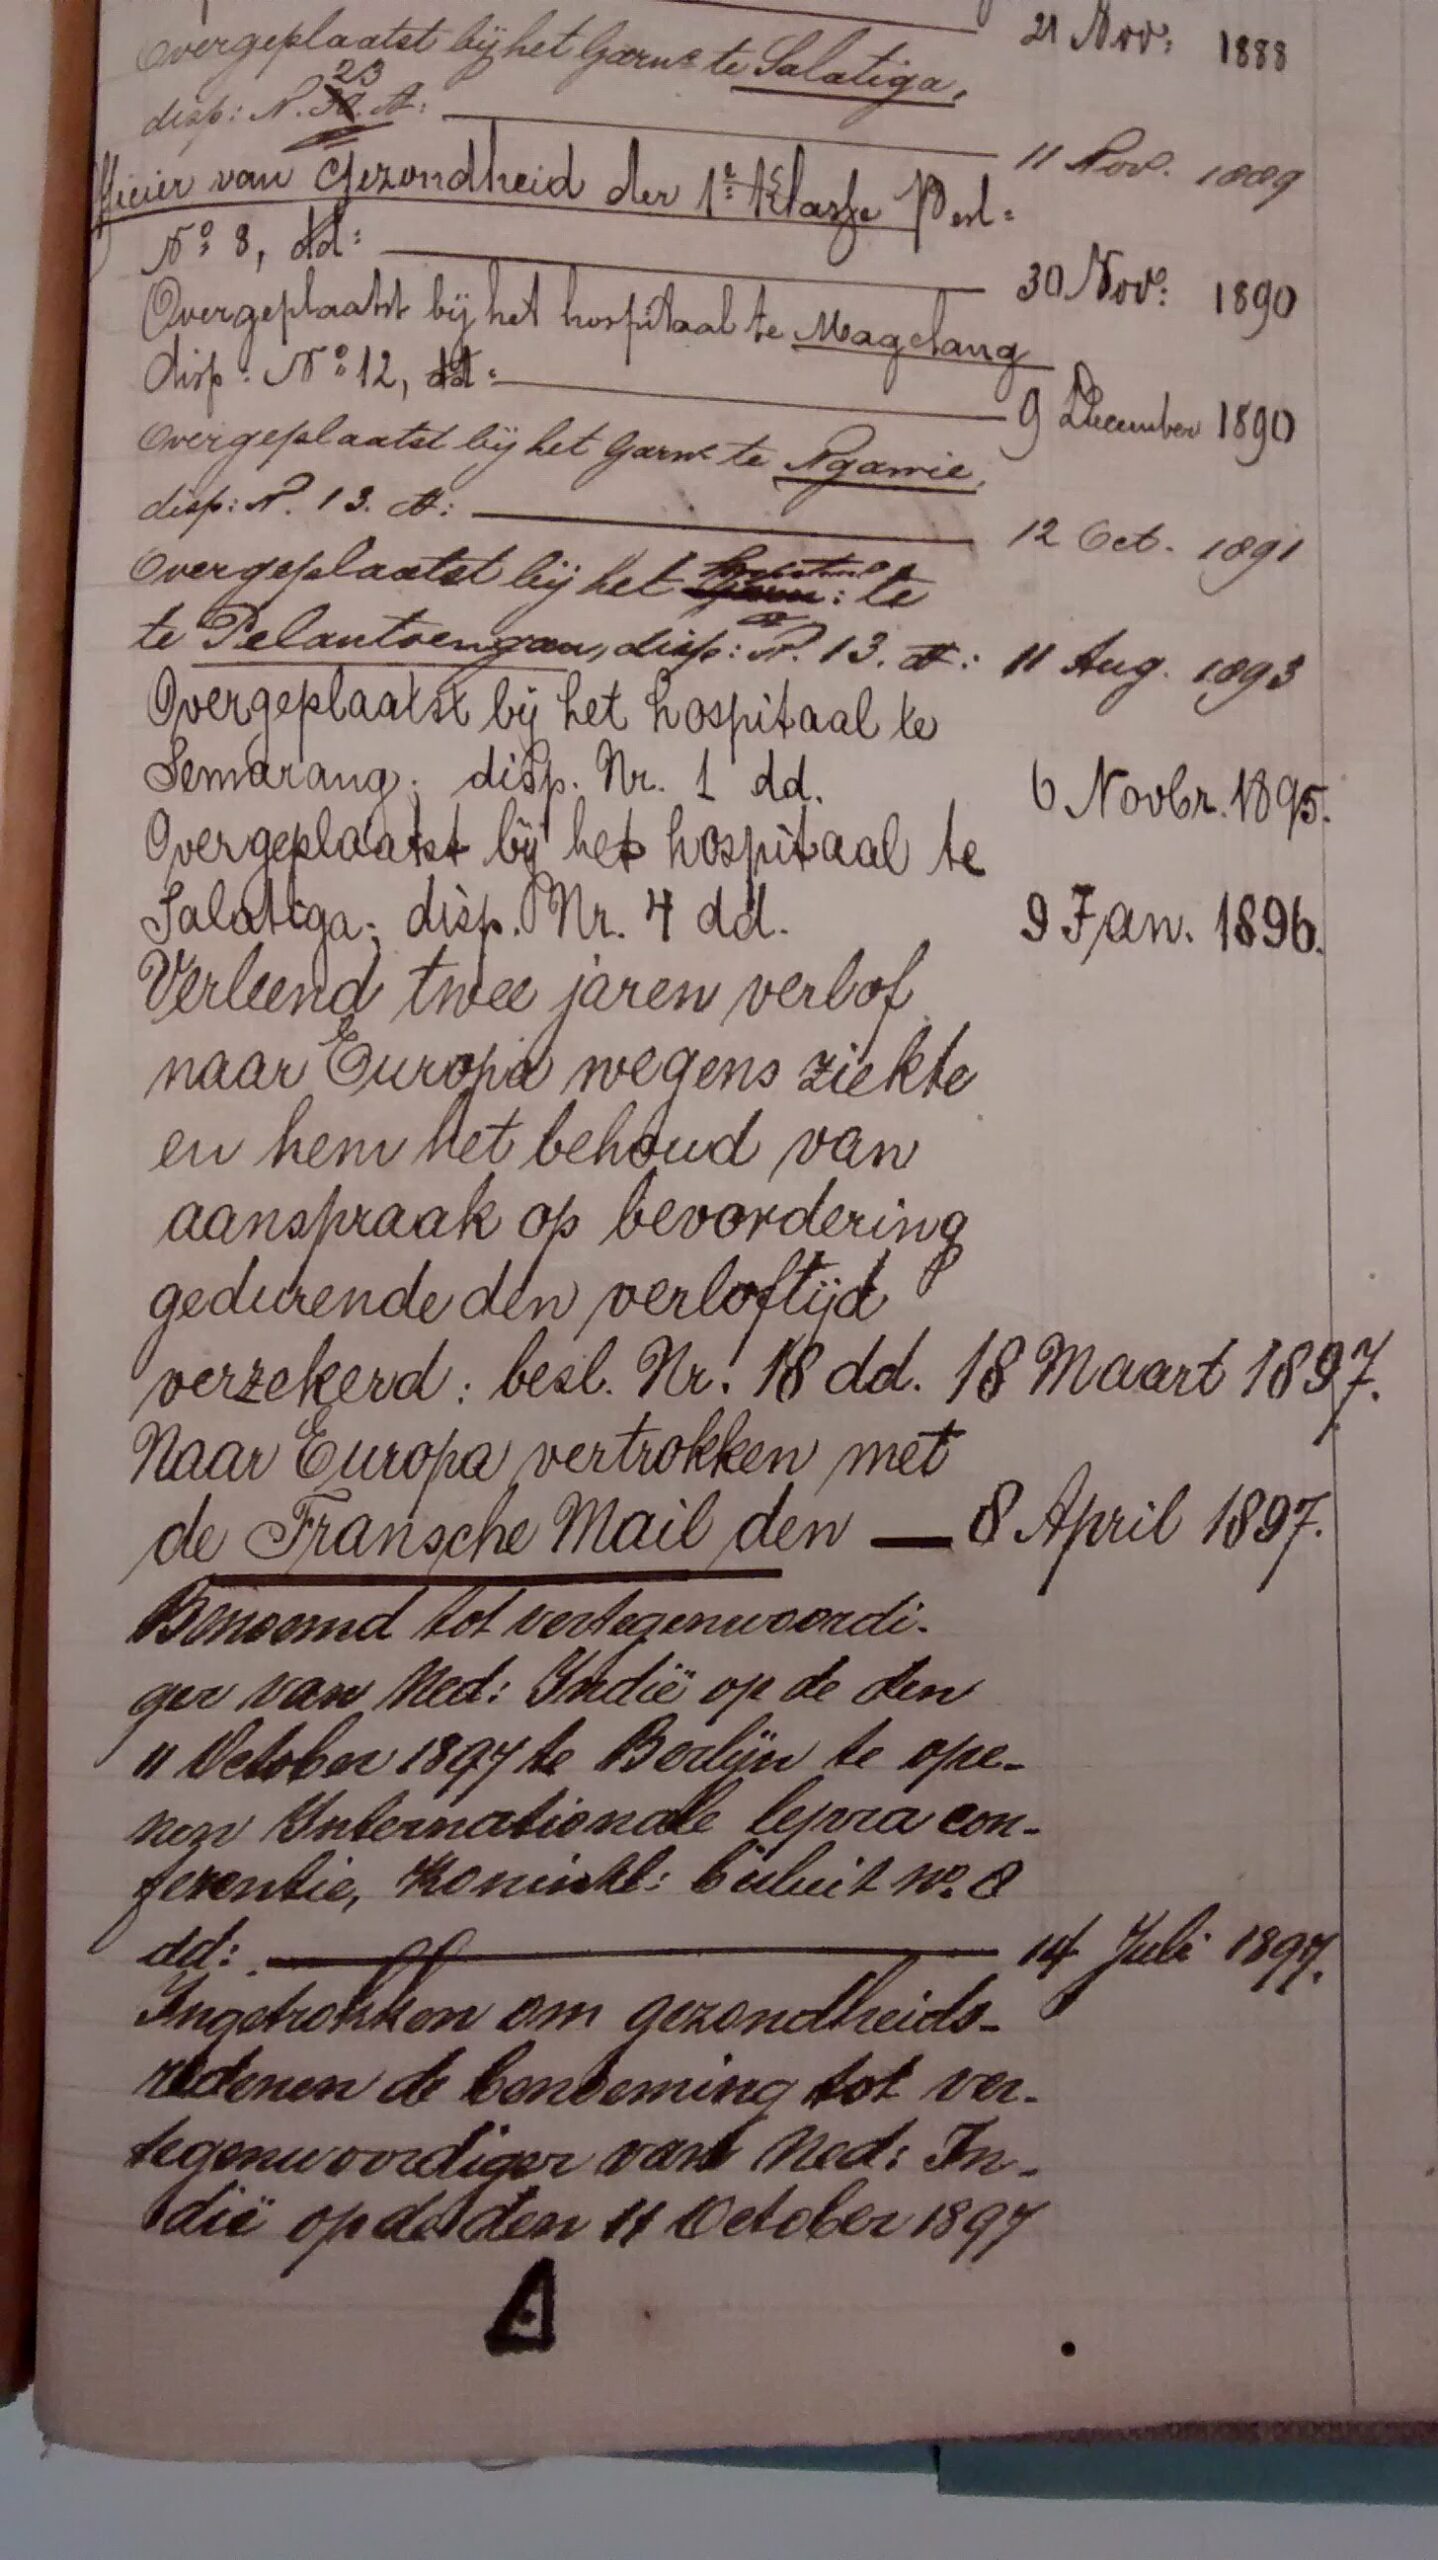 21 Nov: 1888
Overgeplaatst bij het Garnn te Salatiga,
23
disp: N. dd: 11 Nov. 1889
fficier van Gezondheid der 1e Klasse Besl:
No 8, dd: 30 Nov: 1890
Overgeplaatst bij het hospitaal te Magelang
disp: No 12, dd: 9 December 1890
Overgeplaatst bij het Garnn te Ngawie,
disp: N. 13. dd: 12 Oct. 1891
Overgeplaatst bij het hospitaal te
te Pelantoengan, disp: N. 13. dd: 11 Aug. 1893
Overgeplaatst bij het hospitaal te
Semarang; disp. Nr. 1 dd. 6 Novbr. 1895.
Overgeplaatst bij het hospitaal te
Salatiga; disp. Nr. 4 dd. 9 Jan. 1896.
Verleend twee jaren verlof
naar Europa wegens ziekte
en hem het behoud van
aanspraak op bevordering
gedurende den verloftijd
verzekerd; besl. Nr. 18 dd. 18 Maart 1897.
Naar Europa vertrokken met
de Fransche Mail den — 8 April 1897.
Benoemd tot vertegenwoordi-
ger van Ned: Indië op de den
11 October 1897 te Berlijn te ope-
nen Internationale lepra con-
ferentie, Koninkl: besluit No. 8
dd: 14 Juli 1897.
Ingetrokken om gezondheids-
redenen de benoeming tot ver-
tegenwoordiger van Ned: In-
dië op de den 11 October 1897